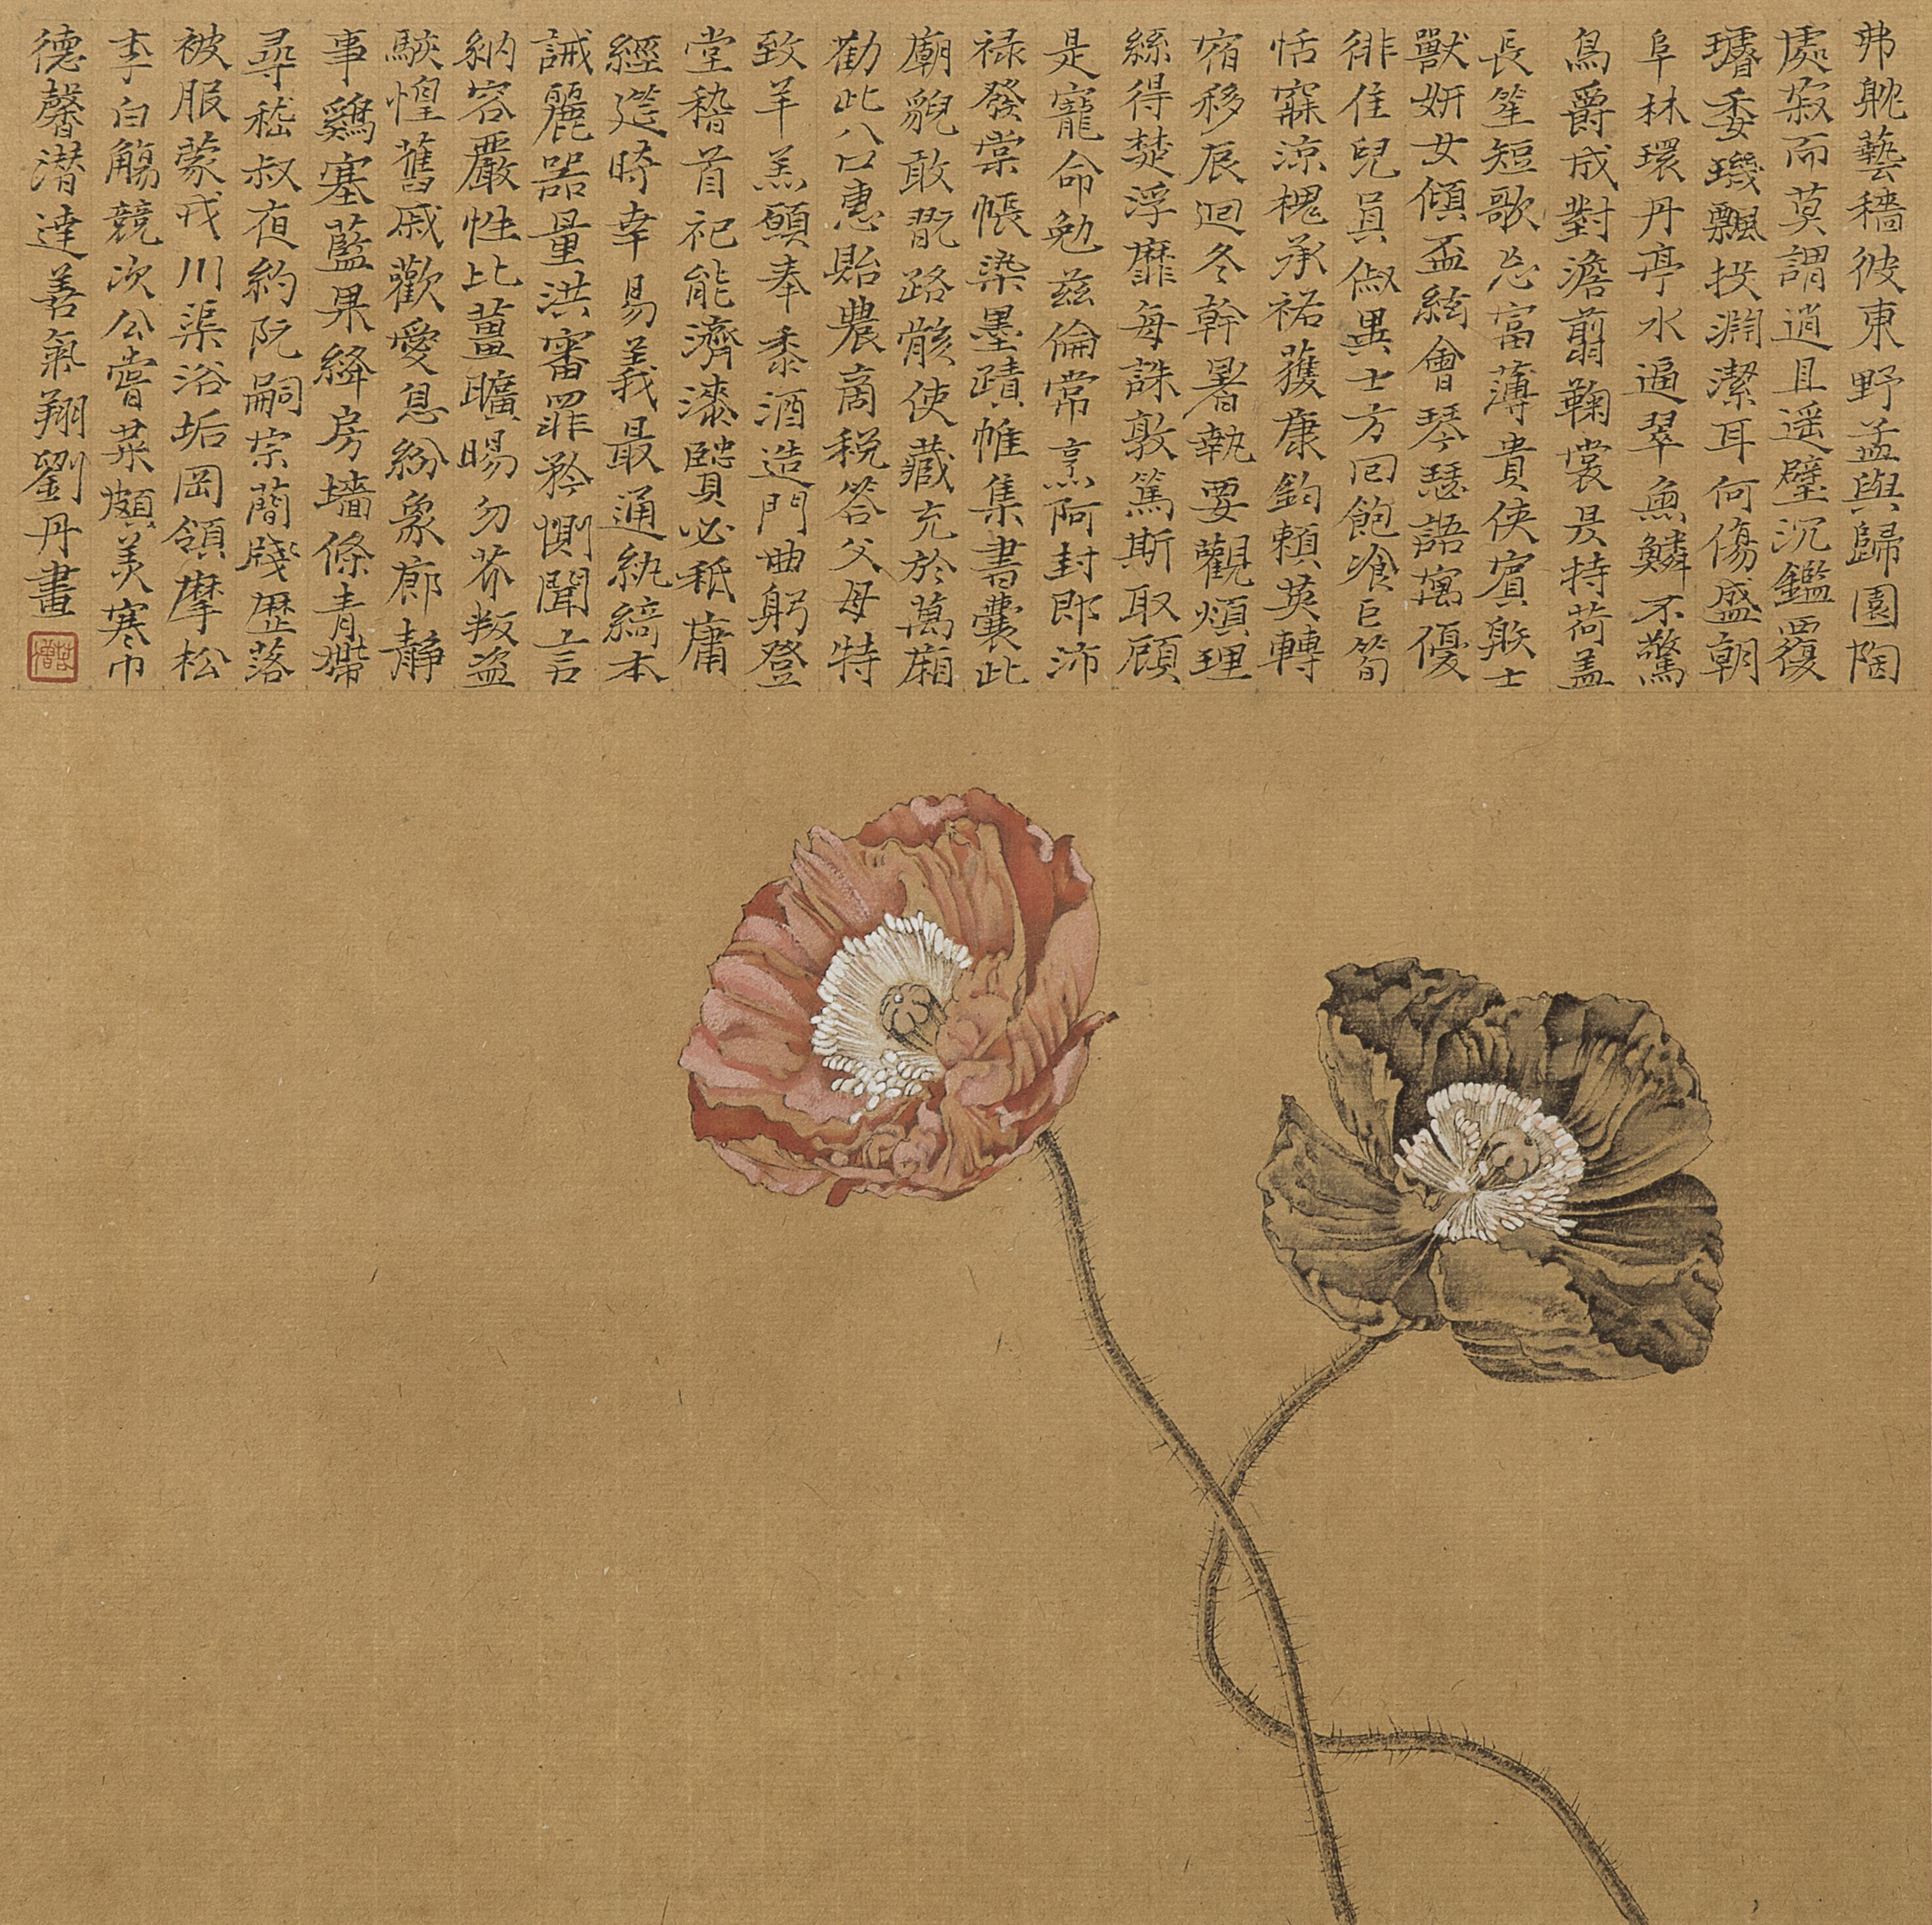 弗耽藝穡彼東野孟與歸園陶
處寂而莫謂逍且遥璧沉鑑覆
璿委璣飄投澗潔耳何傷盛朝
阜林環丹亭水遍翠魚鱗不驚
鳥爵成對澹翦鞠裳是持荷盖
長笙短歌忘富薄貴俠賓敗士
獸妍女傾盃絃會琴瑟語寓優
徘佳兒員俶異士方回飽飡巨筍
恬寐涼槐承祐獲康鈞賴英轉
宿移辰迴冬幹暑執要觀煩理
絲得楚浮靡每誅敦篤斯取顧
是寵命勉兹倫常烹阿封郎沛
禄發棠帳染墨蹟帷集書囊此
廟貌敢翫路骸使藏充於萬廂
勸此八口惠貽農商税答父母特
致羊羔願奉黍酒造門曲躬登
堂稽首祀能濟漆賾必秪庸
經筵時幸易義最通紈綺本
誡麗器量洪審罪矜惻聞言
納容嚴性比薑曠賜勿芥叛盜
駭惶舊戚歡愛息紛象廊靜
事鷄塞藍果絳房墻條青帶
尋嵇叔夜約阮嗣宗蕳牋歷落
被服蒙戎川渠浴垢岡領摩松
李白觴競次公嘗菜頗羙寒巾
德馨潛達善氣翔劉丹畫